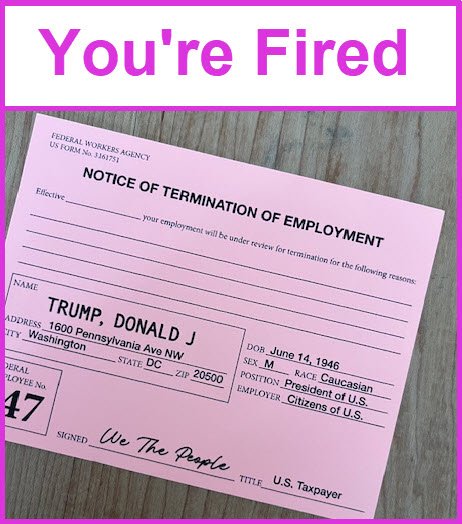 You're Fired
FEDERAL WORKERS AGENCY
US FORM No. 3161751
NOTICE OF TERMINATION OF EMPLOYMENT
Effective , your employment will be under review for termination for the following reasons:
NAME
TRUMP, DONALD J
ADDRESS 1600 Pennsylvania Ave NW
CITY Washington STATE DC ZIP 20500
DOB June 14, 1946
SEX M RACE Caucasian
POSITION President of U.S.
EMPLOYER Citizens of U.S.
EDERAL
PLOYEE No.
47
SIGNED We The People TITLE U.S. Taxpayer